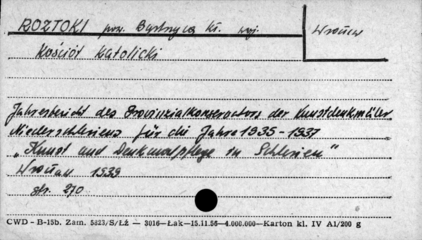 ROZTOKI pow. Bystrzyca Kł. woj. Wrocław
Kościół Katolicki
Jahresbericht des Provinzialkonservators der Kunstdenkmäler
Niederschlesiens für die Jahre 1935-1937
"Kunst und Denkmalpflege in Schlesien"
Wrocław 1939
str. 210
CWD - B-15b. Zam. 5823/S/ŁŻ — 3016—Łak—15.11.56—4.000.000—Karton kl. IV A1/200 g